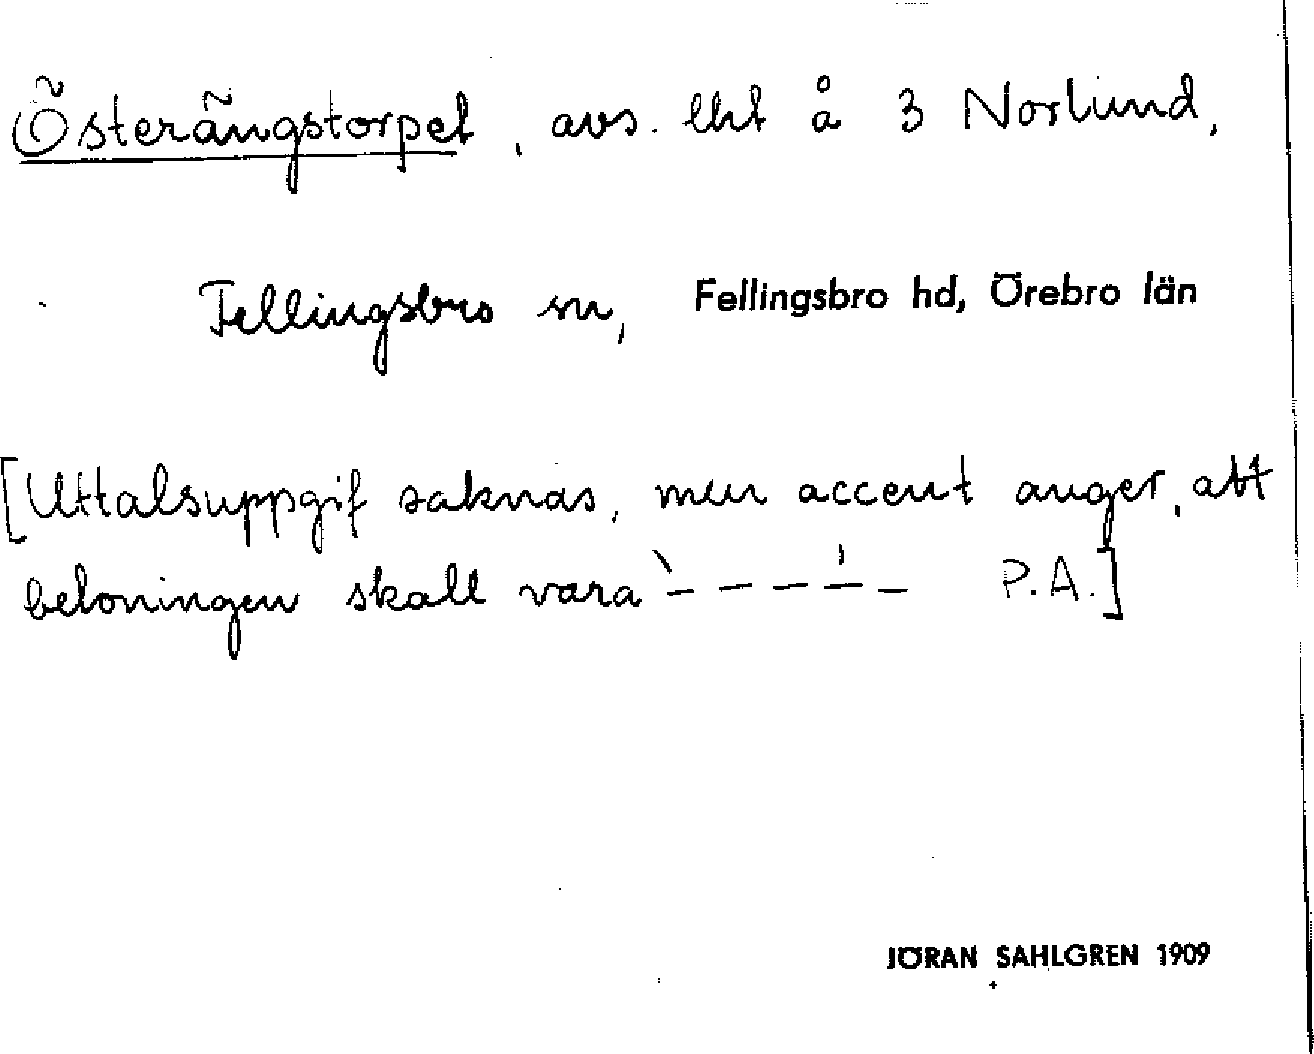 Österängstorpet, avs. lht å 3 Norlund,
Fellingsbro sn, Fellingsbro hd, Örebro län
[Uttalsuppgif saknas, men accent anger, att
betoningen skall vara `– – – '– – P.A.]
JÖRAN SAHLGREN 1909